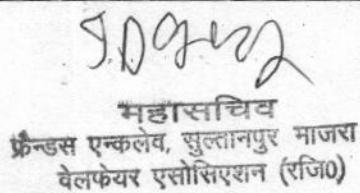 महासचिव
फ्रैन्डस एन्कलेव, सुल्तानपुर माजरा
वेलफेयर एसोसिएशन (रजि0)